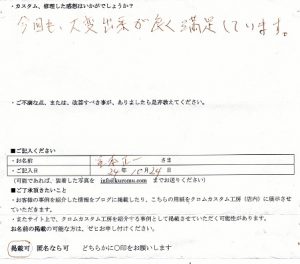 ・カスタム、修理した感想はいかがでしょうか？
今回も、大変出来が良く満足しています。
・ご不満な点、または、改善すべき事が、ありましたら是非教えてください。
■ご記入ください
・お名前 さま
・ご記入日 24年 10月24日
(可能であれば、装着した写真を info@kuromu.com までお送りください)
■ご了承頂きたいこと
・お客様の事例を紹介した情報をブログに掲載したり、こちらの用紙をクロムカスタム工房（店内）に展示させていただきます。
・またサイト上で、クロムカスタム工房を紹介する事例として掲載させていただく可能性があります。
お名前の掲載の可能な方は、ぜひお申し付けください。
掲載可 匿名なら可 どちらかに〇印をお願いします